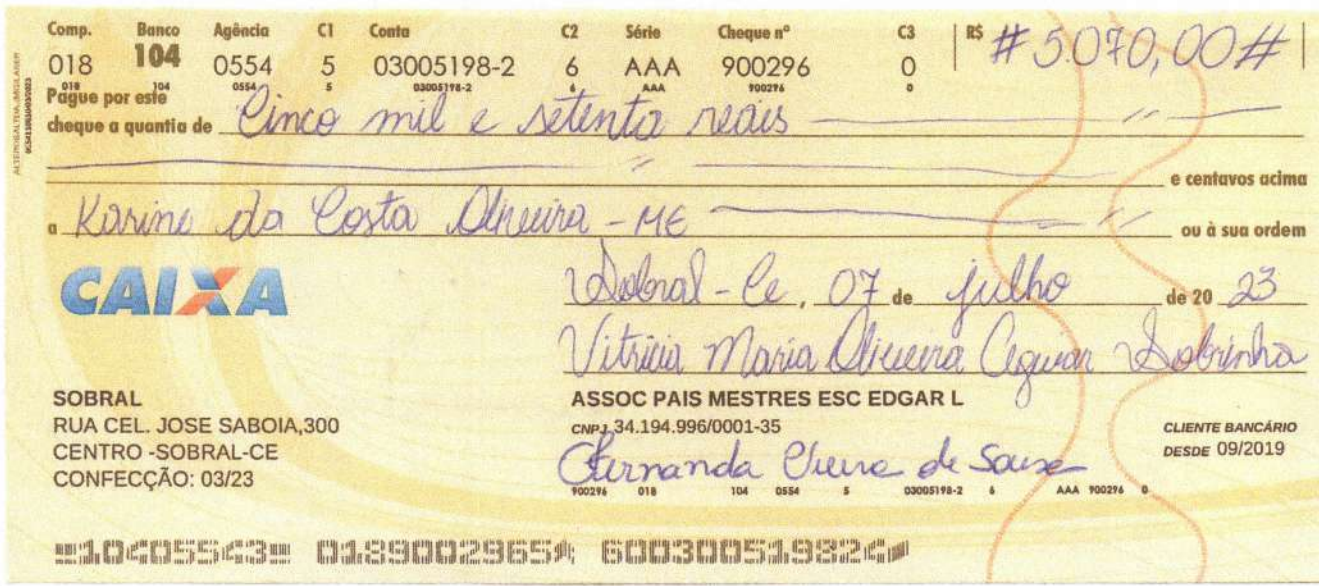 Comp. Banco Agência C1 Conta C2 Série Cheque nº C3 R$ # 5.070,00 #
018 104 0554 5 03005198-2 6 AAA 900296 0
018 104 0554 5 03005198-2 6 AAA 900296 0
Pague por este
cheque a quantia de Cinco mil e setenta reais
e centavos acima
a Karine da Costa Oliveira - ME ou à sua ordem
CAIXA
Sobral - Ce, 07 de julho de 20 23
Vitricia Maria Oliveira Aguiar Sobrinha
SOBRAL
RUA CEL. JOSE SABOIA,300
CENTRO -SOBRAL-CE
CONFECÇÃO: 03/23
ASSOC PAIS MESTRES ESC EDGAR L
CNPJ 34.194.996/0001-35
CLIENTE BANCÁRIO
DESDE 09/2019
Fernanda Vieira de Sousa
900296 018 104 0554 5 03005198-2 6 AAA 900296 0
10405543 0189002965 600300519824